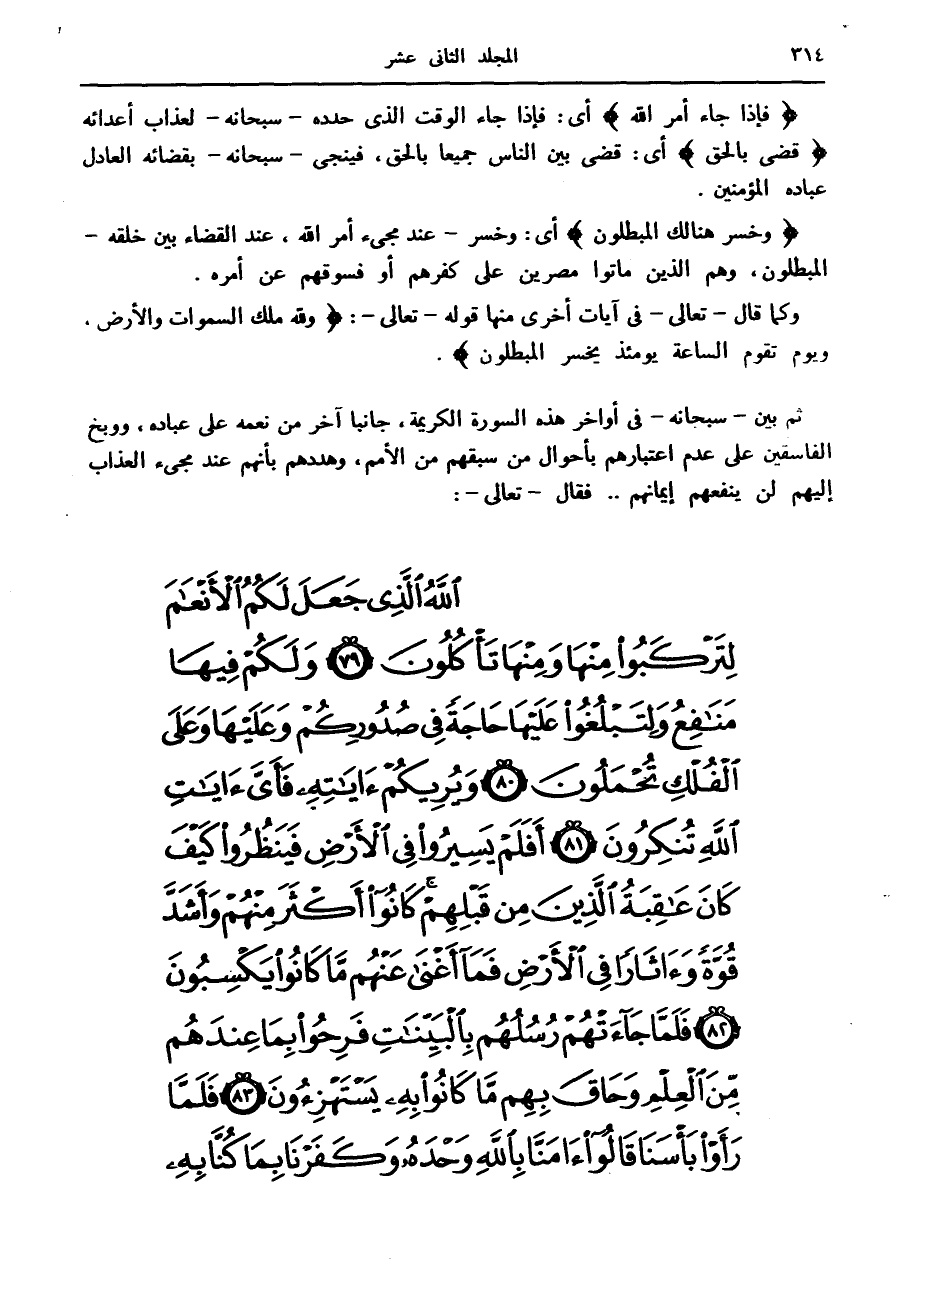 ٣١٤
المجلد الثانى عشر
﴿ فإذا جاء أمر الله ﴾ أى: فإذا جاء الوقت الذى حدده – سبحانه – لعذاب أعدائه
﴿ قضى بالحق ﴾ أى: قضى بين الناس جميعا بالحق، فينجى – سبحانه – بقضائه العادل
عباده المؤمنين .
﴿ وخسر هنالك المبطلون ﴾ أى: وخسر – عند مجىء أمر الله ، عند القضاء بين خلقه –
المبطلون، وهم الذين ماتوا مصرين على كفرهم أو فسوقهم عن أمره .
وكما قال – تعالى – فى آيات أخرى منها قوله – تعالى –: ﴿ ولله ملك السموات والأرض ،
ويوم تقوم الساعة يومئذ يخسر المبطلون ﴾ .
ثم بين – سبحانه – فى أواخر هذه السورة الكريمة، جانبا آخر من نعمه على عباده، ووبخ
الفاسقين على عدم اعتبارهم بأحوال من سبقهم من الأمم، وهددهم بأنهم عند مجىء العذاب
إليهم لن ينفعهم إيمانهم .. فقال – تعالى –:
ٱللَّهُ ٱلَّذِى جَعَلَ لَكُمُ ٱلْأَنْعَٰمَ
لِتَرْكَبُوا۟ مِنْهَا وَمِنْهَا تَأْكُلُونَ ٧٩ وَلَكُمْ فِيهَا
مَنَٰفِعُ وَلِتَبْلُغُوا۟ عَلَيْهَا حَاجَةً فِى صُدُورِكُمْ وَعَلَيْهَا وَعَلَى
ٱلْفُلْكِ تُحْمَلُونَ ٨٠ وَيُرِيكُمْ ءَايَٰتِهِۦ فَأَىَّ ءَايَٰتِ
ٱللَّهِ تُنكِرُونَ ٨١ أَفَلَمْ يَسِيرُوا۟ فِى ٱلْأَرْضِ فَيَنظُرُوا۟ كَيْفَ
كَانَ عَٰقِبَةُ ٱلَّذِينَ مِن قَبْلِهِمْ ۚ كَانُوٓا۟ أَكْثَرَ مِنْهُمْ وَأَشَدَّ
قُوَّةً وَءَاثَارًا فِى ٱلْأَرْضِ فَمَآ أَغْنَىٰ عَنْهُم مَّا كَانُوا۟ يَكْسِبُونَ
٨٢ فَلَمَّا جَآءَتْهُمْ رُسُلُهُم بِٱلْبَيِّنَٰتِ فَرِحُوا۟ بِمَا عِندَهُم
مِّنَ ٱلْعِلْمِ وَحَاقَ بِهِم مَّا كَانُوا۟ بِهِۦ يَسْتَهْزِءُونَ ٨٣ فَلَمَّا
رَأَوْا۟ بَأْسَنَا قَالُوٓا۟ ءَامَنَّا بِٱللَّهِ وَحْدَهُۥ وَكَفَرْنَا بِمَا كُنَّا بِهِۦ